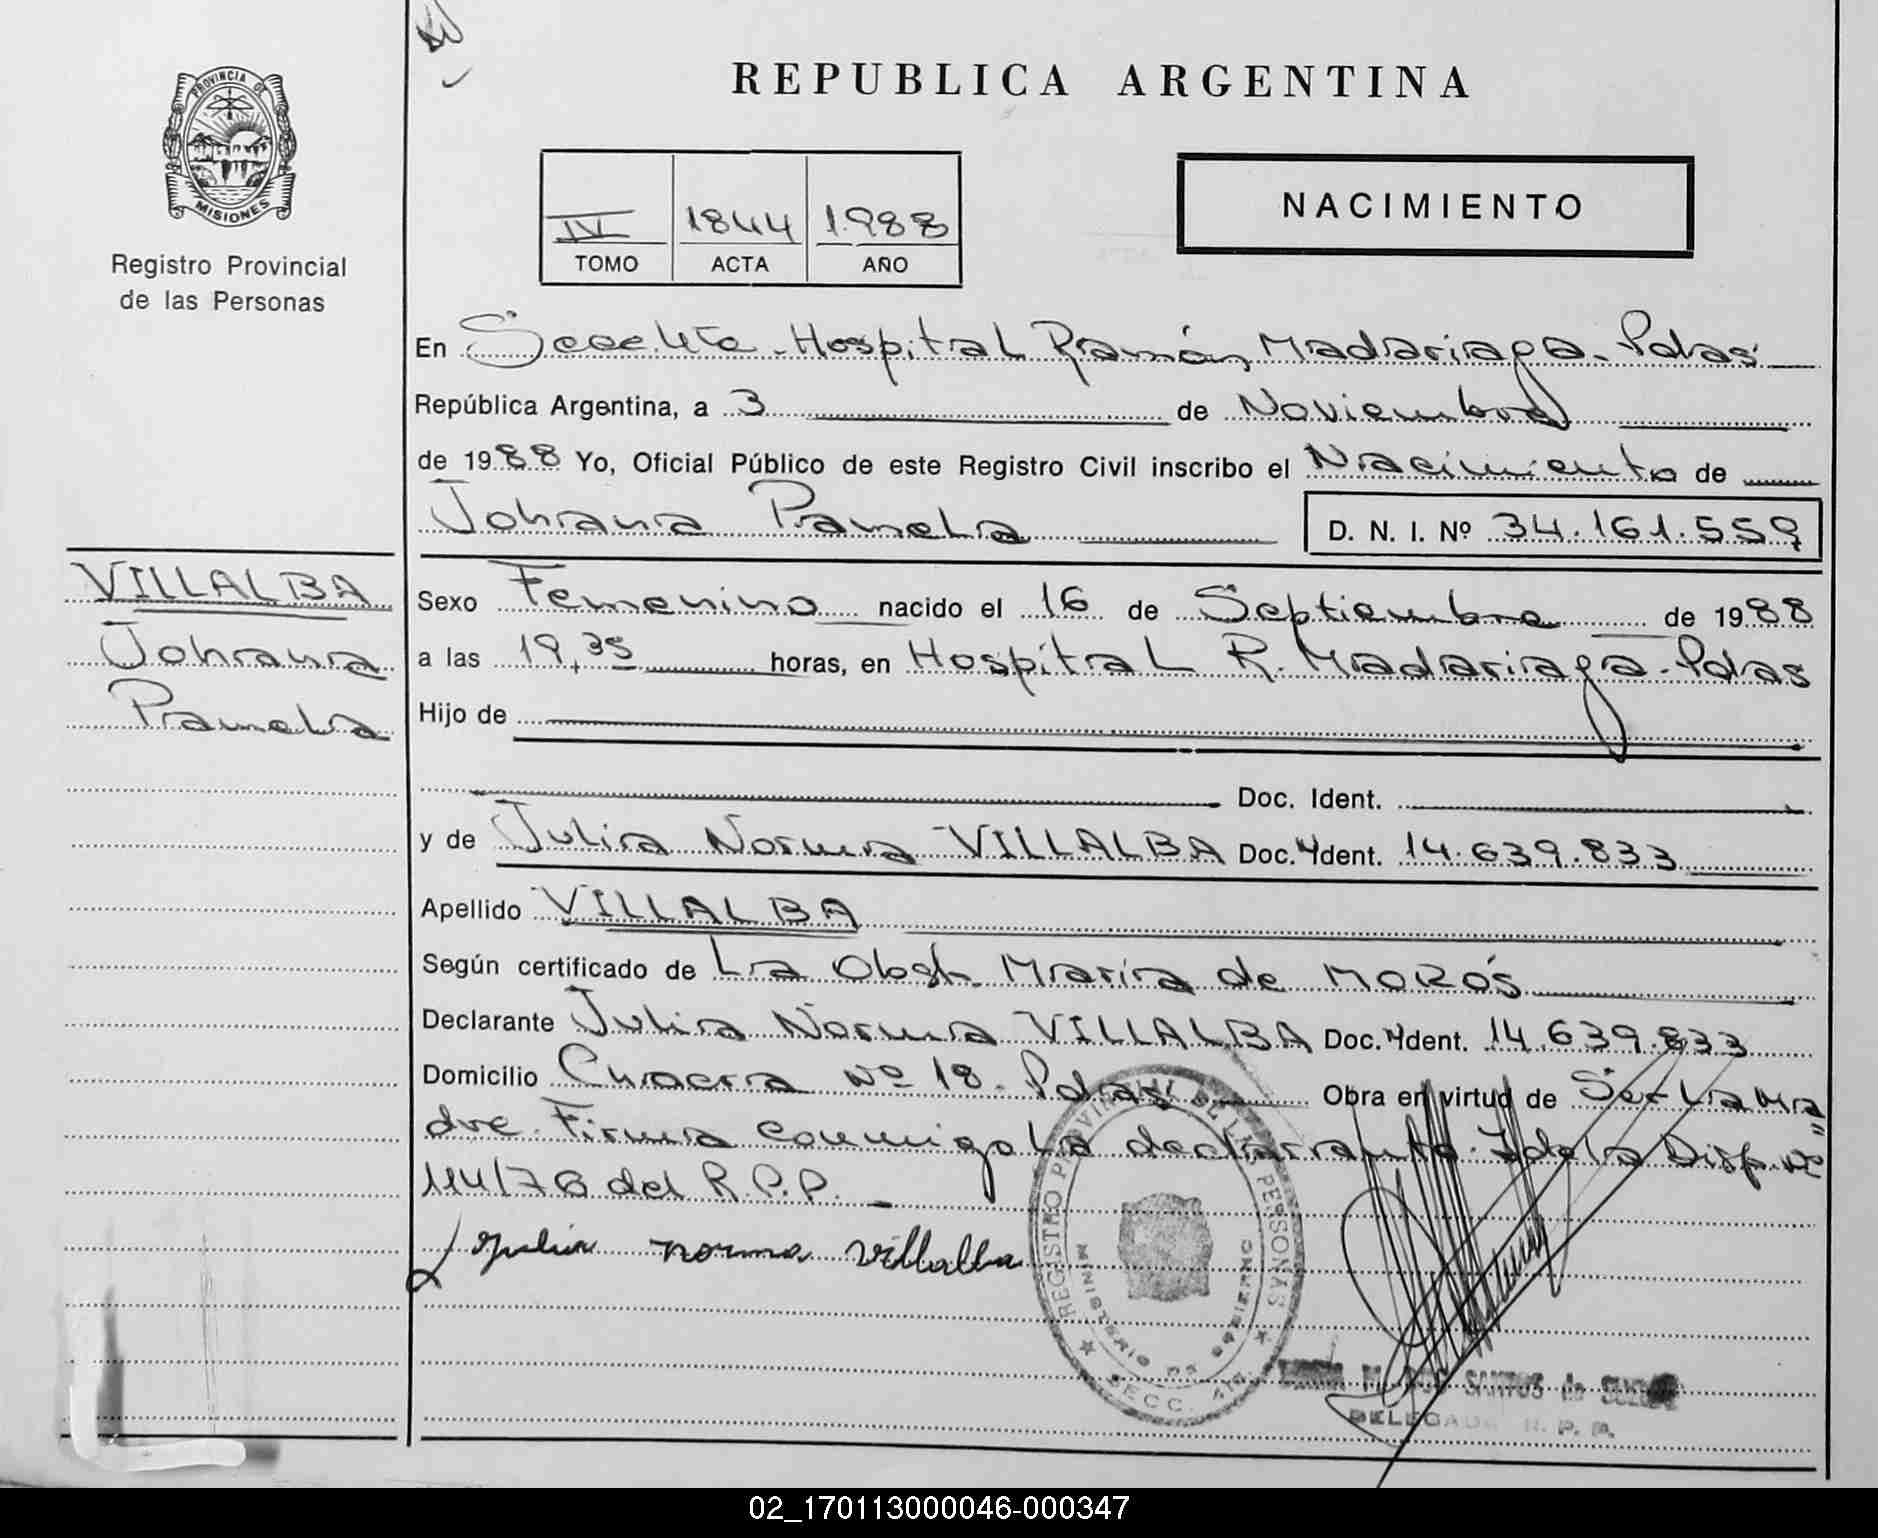 REPUBLICA ARGENTINA
PROVINCIA DE
MISIONES
Registro Provincial
de las Personas
IV 1844 1.988
TOMO ACTA AÑO
NACIMIENTO
En Secc. 4ta - Hospital Ramón Madariaga - Pdas
República Argentina, a 3 de Noviembre
de 1988 Yo, Oficial Público de este Registro Civil inscribo el Nacimiento de
Johana Pamela D. N. I. Nº 34.161.559
VILLALBA
Johana
Pamela
Sexo Femenino nacido el 16 de Septiembre de 1988
a las 19,35 horas, en Hospital R. Madariaga - Pdas
Hijo de
Doc. Ident.
y de Julia Norma VILLALBA Doc. Ident. 14.639.833
Apellido VILLALBA
Según certificado de La Obst. María de MOROS
Declarante Julia Norma VILLALBA Doc. Ident. 14.639.833
Domicilio Chacra Nº 18 - Pdas Obra en virtud de Ser La Ma
dre. Firma conmigo la declarante. Disp. Nº
114/76 del R.P.P.
Julia norma villalba
REGISTRO PROVINCIAL DE LAS PERSONAS
MINISTERIO DE GOBIERNO
SECC. 4ta
M. DOS SANTOS de
DELEGADA R. P. P.
02_170113000046-000347